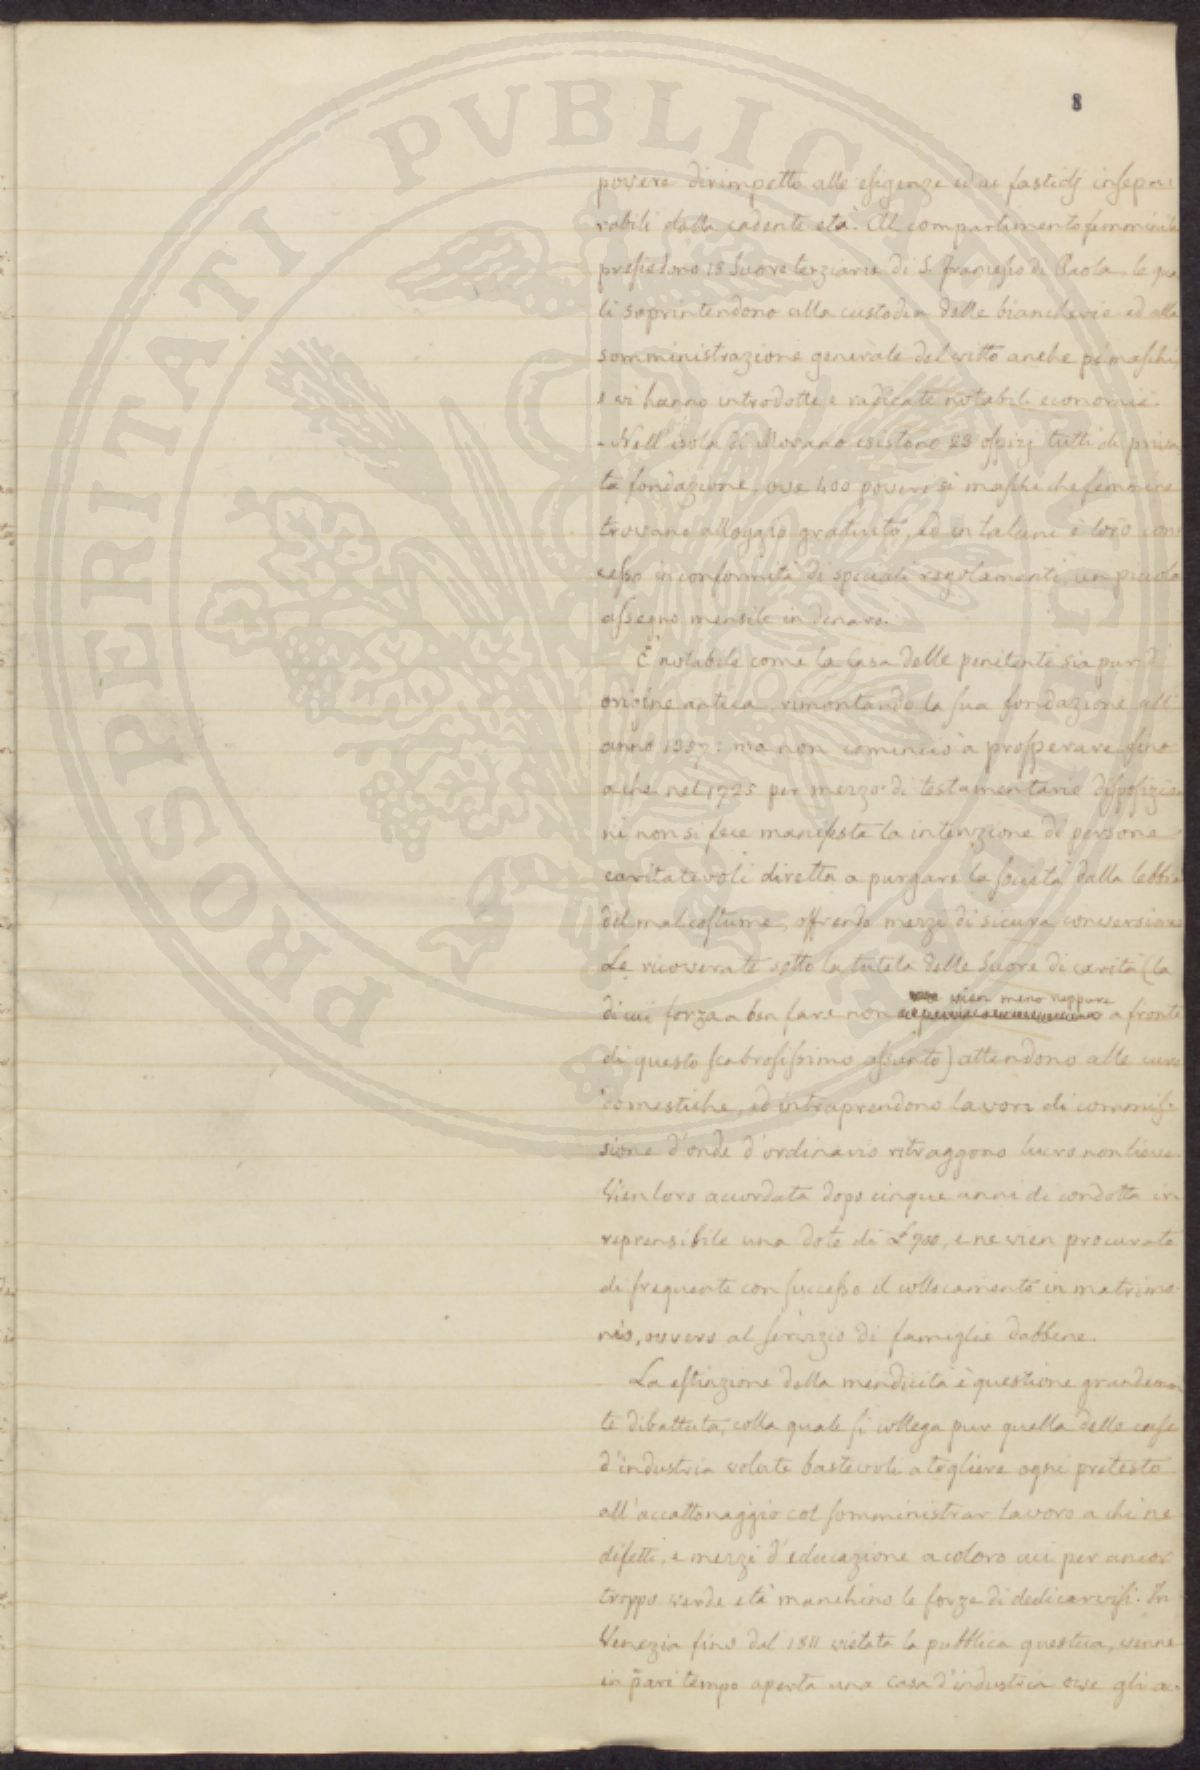 8
povere dirimpetto alle esigenze ed ai fastidj insepa
rabili dalla cadente età. Al compartimento femminile
presiedono 18 Suore terziarie di S. Francesco di Paola, le qua
li soprintendono alla custodia delle biancherie ed alla
somministrazione generale del vitto anche pei maschi,
e vi hanno introdotte e radicate notabili economie.
- Nell'isola di Murano esistono 23 ospizj tutti di priva
ta fondazione, ove 400 poveri sì maschi che femmine
trovano alloggio gratuito, ed in taluni è loro con
cesso in conformità di speciali regolamenti, un piccolo
assegno mensile in denaro.
È notabile come la Casa delle penitenti sia pur di
origine antica, rimontando la sua fondazione all'
anno 1357: ma non cominciò a prosperare fino
a che nel 1725 per mezzo di testamentarie disposizio
ni non si fece manifesta la intenzione di persone
caritatevoli diretta a purgare la società dalla lebbra
del mal costume, offrendo mezzi di sicura conversione.
Le ricoverate sotto la tutela delle Suore di carità (la
vien meno neppure
di cui forza a ben fare non a fronte
di questo scabrosissimo assunto) attendono alle cure
domestiche, ed intraprendono lavori di commis-
sione d'onde d'ordinario ritraggono lucro non lieve.
Vien loro accordata dopo cinque anni di condotta ir
reprensibile una dote di £ 700, e ne vien procurato
di frequente con successo il collocamento in matrimo
nio, ovvero al servizio di famiglie dabbene.
La estinzione della mendicità è questione grandemen
te dibattuta, colla quale si collega pur quella delle case
d'industria volute bastevoli a togliere ogni pretesto
all'accattonaggio col somministrar lavoro a chi ne
difetti, e mezzi d'educazione a coloro cui per ancor
troppo verde età manchino le forze di dedicarvisi. In
Venezia fino dal 1811 vietata la pubblica questua, venne
in pari tempo aperta una casa d'industria ove gli ac
PROSPERITATI PVBLICAE AVGENDAE